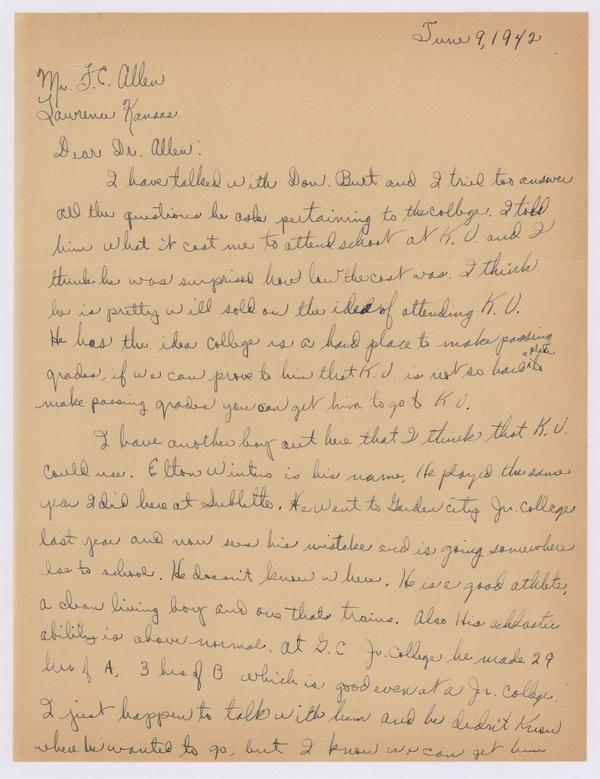 June 9, 1942
Mr. F.C. Allen
Lawrence Kansas.
Dear Dr. Allen:
I have talked with Don. Burt and I tried too answer
all the questions he ask pertaining to the college. I told
him what it cost me to attend school at K.U. and I
think he was surprised how low the cost was. I think
he is pretty will sold on the idea of attending K.U.
He has the idea college is a hard place to make passing
grades, if we can prove to him that K.U. is not so hard
to
make passing grades you can get him to go to K.U.
I have another boy out here that I think that K.U.
could use. Elton Winters is his name. He played the same
year I did here at Sublette. He went to Garden city Jr. College
last year and now sees his mistake and is going somewhere
else to school. He doesn't know where. He is a good athlete,
a clean living boy and one thats trains. Also His scholastic
ability is above normal. At G.C. Jr. College he made 29
hrs of A, 3 hrs of B which is good even at a Jr. College.
I just happen to talk with him and he didn't know
where he wanted to go, but I know we can get him